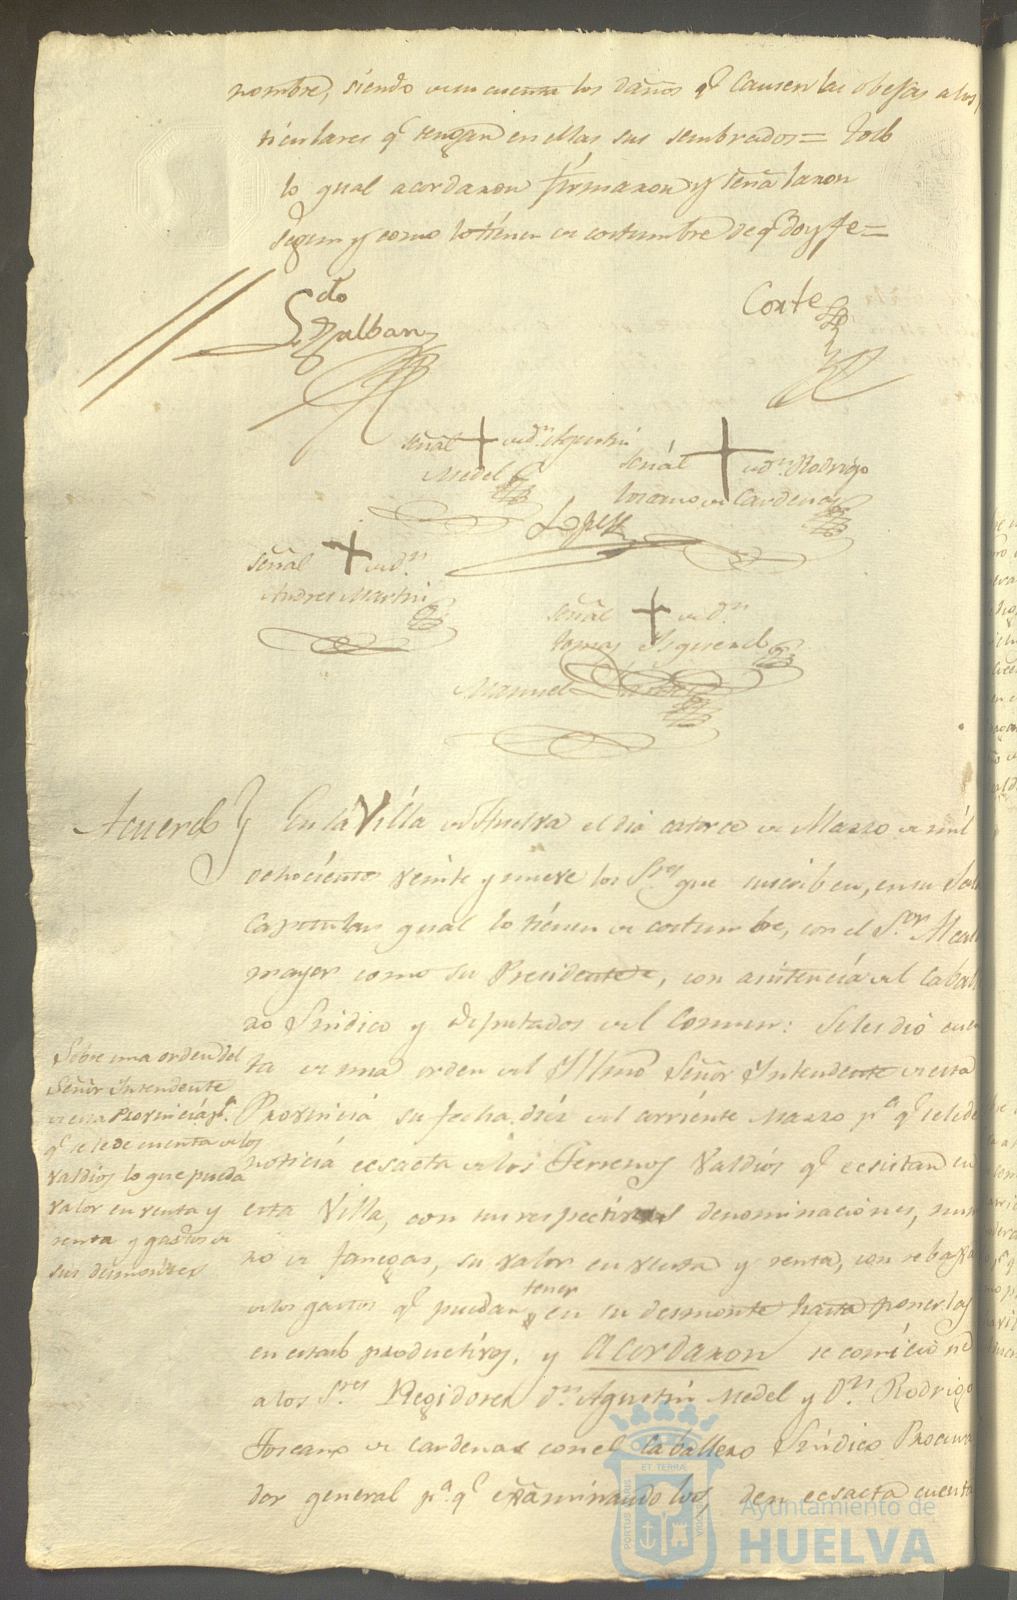 nombre, siendo de su cuenta los daños qe. causen las obejas a los
ticulares qe. tengan en ellas sus sembrados= todo
lo qual acordaron firmaron y señalaron
segun y como lo tienen de costumbre de qe. doy fe=
Sdo
Galban
Corte
señal + de dn. Agustin
Medel
señal + de dn. Rodrigo
toscano de Cardenas
Lopez
señal + de dn.
Andres Martin
señal + de dn.
tomas
Manuel
Acuerdo} En la Villa de Huelva el dia catorce de Marzo de mil
ochocientos veinte y nueve los Sres. que suscriben, en su Sala
Capitular qual lo tienen de costumbre, con el Sor. Alcal
mayor como su Presidente, con asistencia del caballe
ro Sindico y Diputados del Comun: Seles dio cuen
ta de una orden del Yllmo. Señor Yntendente de esta
Provincia su fecha diez del corriente Marzo pa. qe. se le de
noticia ecsacta de los Terrenos Valdios qe. ecsistan en
esta Villa, con sus respectivas denominaciones, nume
ro de fanegas, su valor en venta y renta, con rebaxa
de los gastos qe. puedan tener en su desmonte hasta ponerlas
en estado productivos, y Acordaron se comicione
a los Sres. Regidores dn. Agustin Medel y Dn. Rodrigo
Toscano de Cardenas con el Caballero Sindico Procura
dor general pa. qe. examinando los den ecsacta cuenta
Sobre una orden del
Señor Yntendente
de esta Provincia pa.
qe. se le de cuenta de los
valdios lo que pueda
valor en venta y
renta y gastos de
sus desmontes
Ayuntamiento de
HUELVA